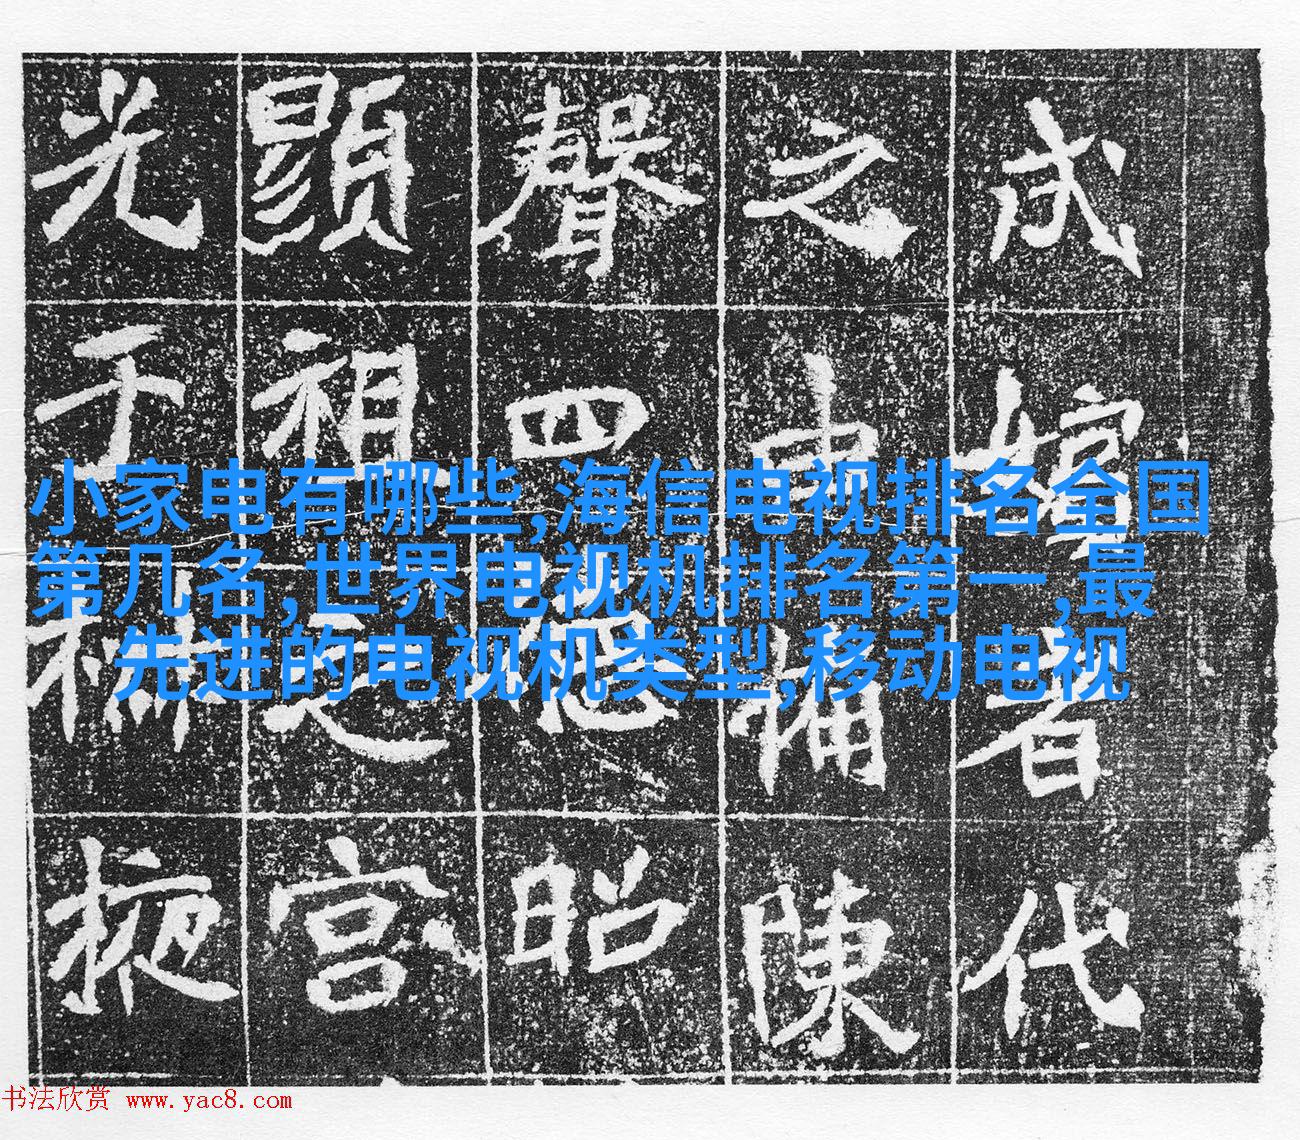 成嬪者代
之陳
聲四德昭
顯祖之宮
光于掖
小家电有哪些,海信电视排名全国
第几名,世界电视机排名第一,最
先进的电视机类型,移动电视
书法欣赏 www.yac8.com